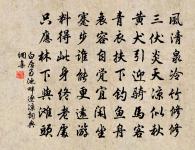 風清泉冷竹修修
三伏炎天涼似秋
黃犬引迎騎馬客
青衣扶下釣魚舟
衰容自覺宜閑坐
蹇步誰能更遠遊
料得此身終老處
只應林下與灘頭
白居易池畔逐涼詞典
網集